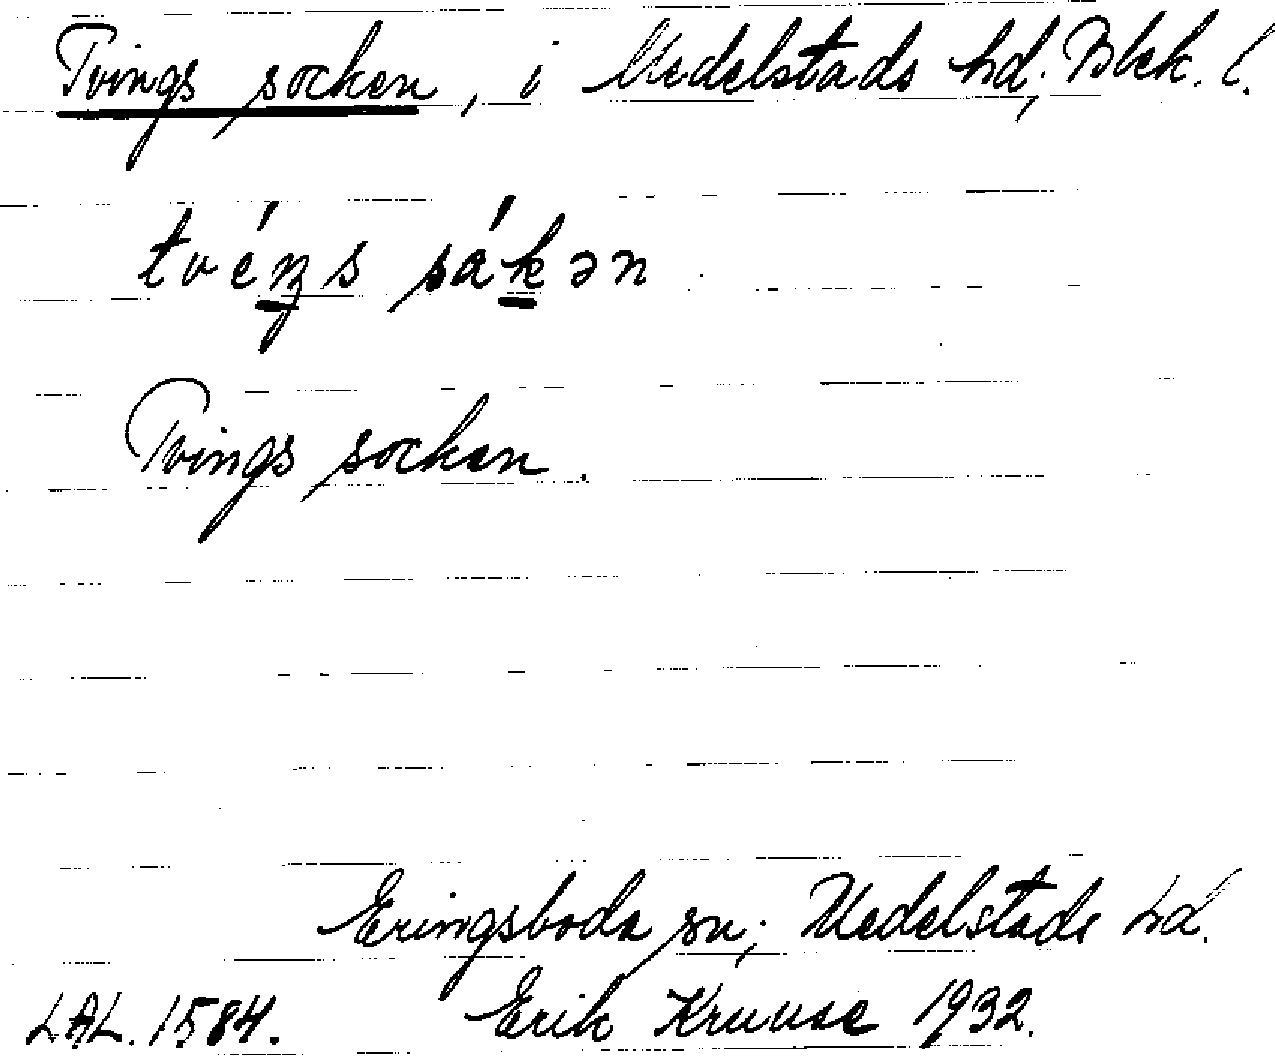 Tvings socken, i Medelstads hd, Blek. l.
tvéŋs sákən
Tvings socken.
Eringsboda sn; Medelstads hd.
LAL. 1584. Erik Kruuse 1932.